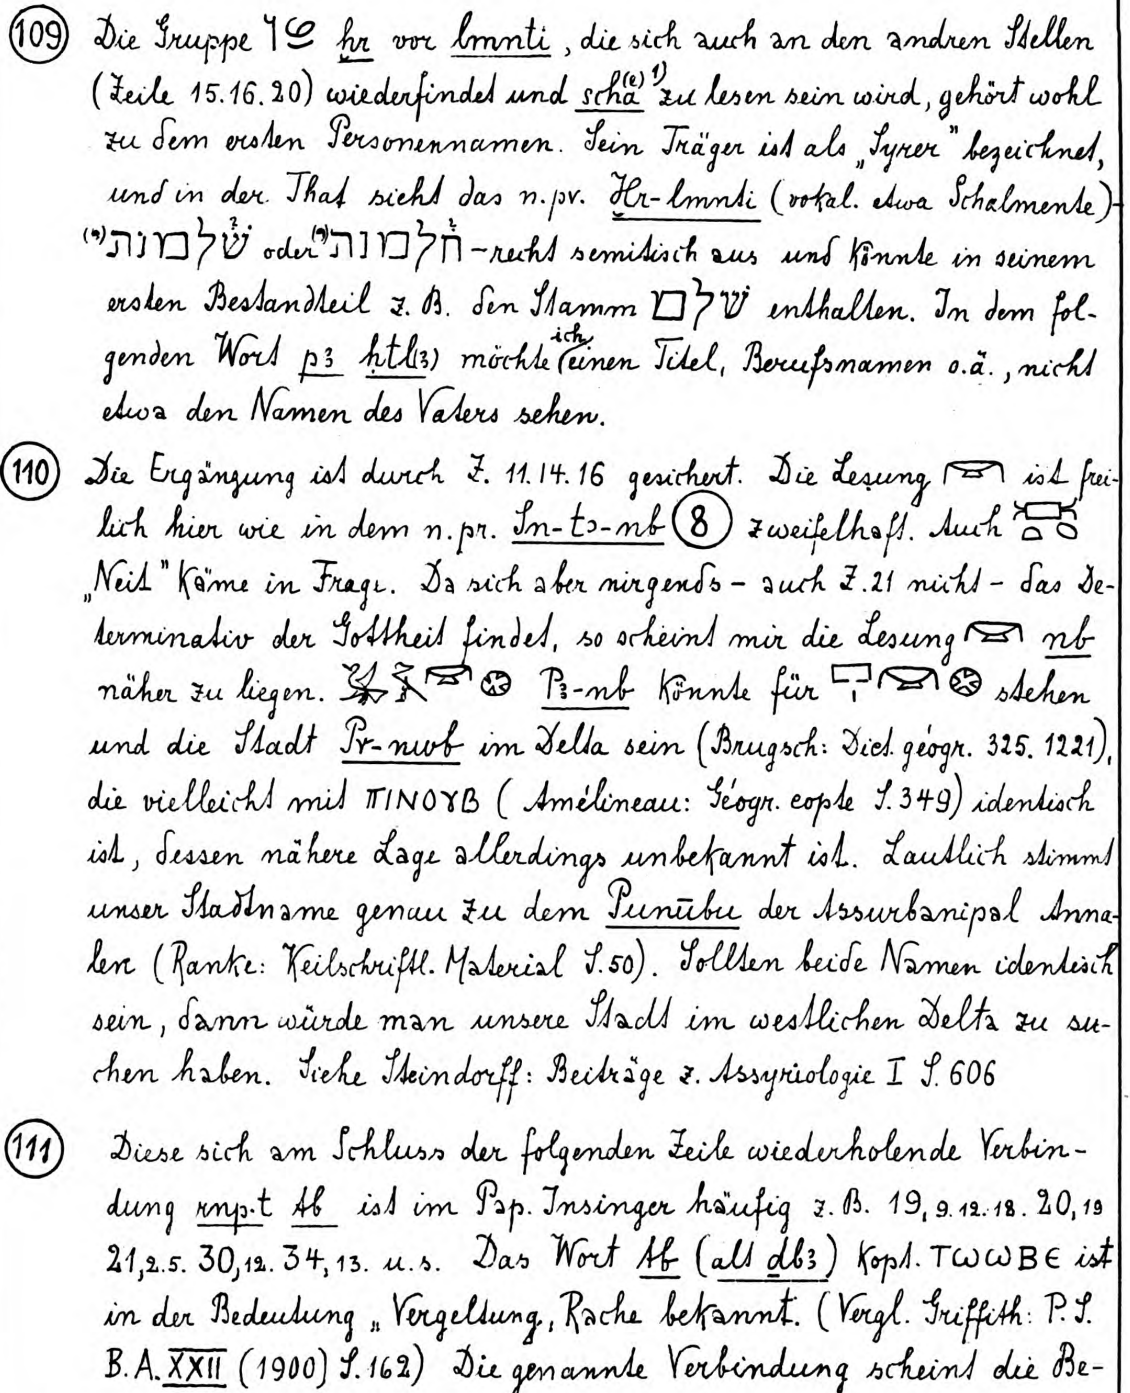 (109) Die Gruppe ḫr vor lmnti, die sich auch an den andren Stellen
(Zeile 15.16.20) wiederfindet und scha(e) 1) zu lesen sein wird, gehört wohl
zu dem ersten Personennamen. Sein Träger ist als „Syrer" bezeichnet,
und in der That sieht das n.pr. Ḫr-lmnti (vokal. etwa Schalmente) -
שלמנות(י) oder חלמנות(י) - recht semitisch aus und könnte in seinem
ersten Bestandteil z. B. den Stamm שלם enthalten. In dem fol-
genden Wort pꜣ ḥtl(ꜣ) möchte ich einen Titel, Berufsnamen o.ä., nicht
etwa den Namen des Vaters sehen.
(110) Die Ergänzung ist durch Z. 11.14.16 gesichert. Die Lesung 𓎟 ist frei-
lich hier wie in dem n.pr. Sn-tꜣ-nb (8) zweifelhaft. Auch
„Neit" käme in Frage. Da sich aber nirgends - auch Z.21 nicht - das De-
terminativ der Gottheit findet, so scheint mir die Lesung 𓎟 nb
näher zu liegen. Pꜣ-nb könnte für 𓉐𓎟𓊖 stehen
und die Stadt Pr-nwb im Delta sein (Brugsch: Dict. géogr. 325. 1221),
die vielleicht mit ΠΙΝΟΥΒ (Amélineau: Géogr. copte S. 349) identisch
ist, dessen nähere Lage allerdings unbekannt ist. Lautlich stimmt
unser Stadtname genau zu dem Punūbu der Assurbanipal Anna-
len (Ranke: Keilschriftl. Material S. 50). Sollten beide Namen identisch
sein, dann würde man unsere Stadt im westlichen Delta zu su-
chen haben. Siehe Steindorff: Beiträge z. Assyriologie I S. 606
(111) Diese sich am Schluss der folgenden Zeile wiederholende Verbin-
dung rnp.t tb ist im Pap. Insinger häufig z. B. 19, 9.12.18. 20,19
21,2.5. 30,12. 34,13. u.s. Das Wort tb (alt dbꜣ) kopt. ΤⲰⲰΒΕ ist
in der Bedeutung „Vergeltung, Rache bekannt. (Vergl. Griffith: P.S.
B.A. XXII (1900) S. 162) Die genannte Verbindung scheint die Be-